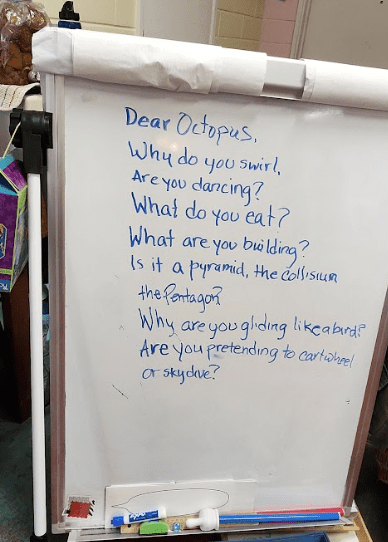 Dear Octopus,
Why do you swirl,
Are you dancing?
What do you eat?
What are you building?
Is it a pyramid, the collisium
the Pentagon?
Why are you gliding like a bird?
Are you pretending to cartwheel
or skydive?
EXPO